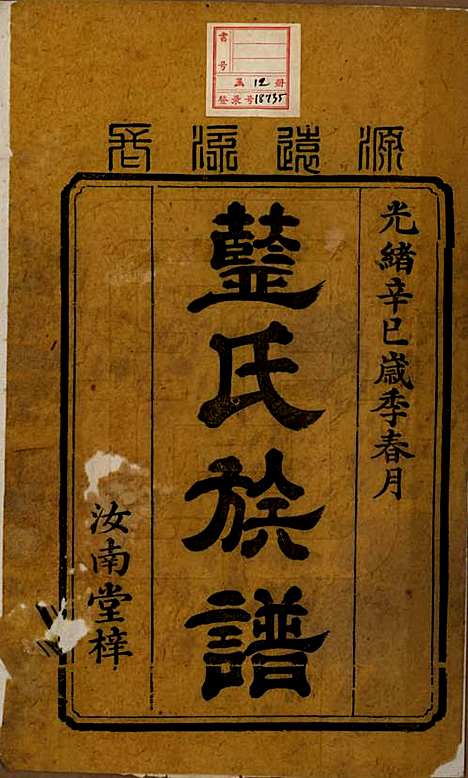 書
号
共 12 册
登录号 18735
源遠流長
光緒辛巳歲季春月
藍氏族譜
汝南堂梓